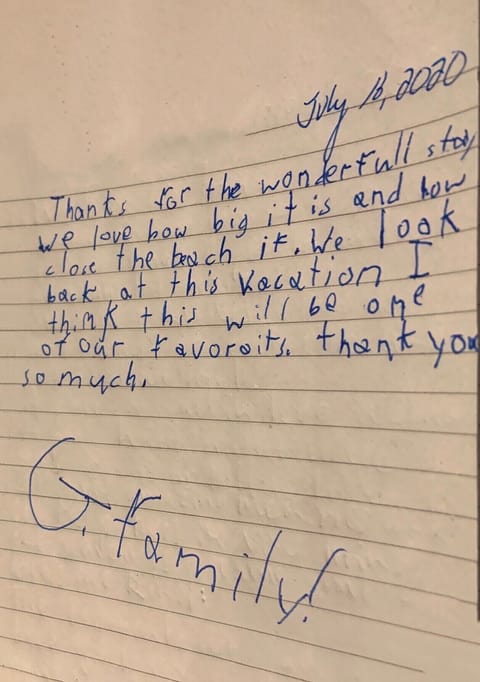 July 18, 2020
Thanks for the wonderfull stay
we love how big it is and how
close the beach it. We look
back at this vacation I
think this will be one
of our favoroits. thank you
so much.
G. family!